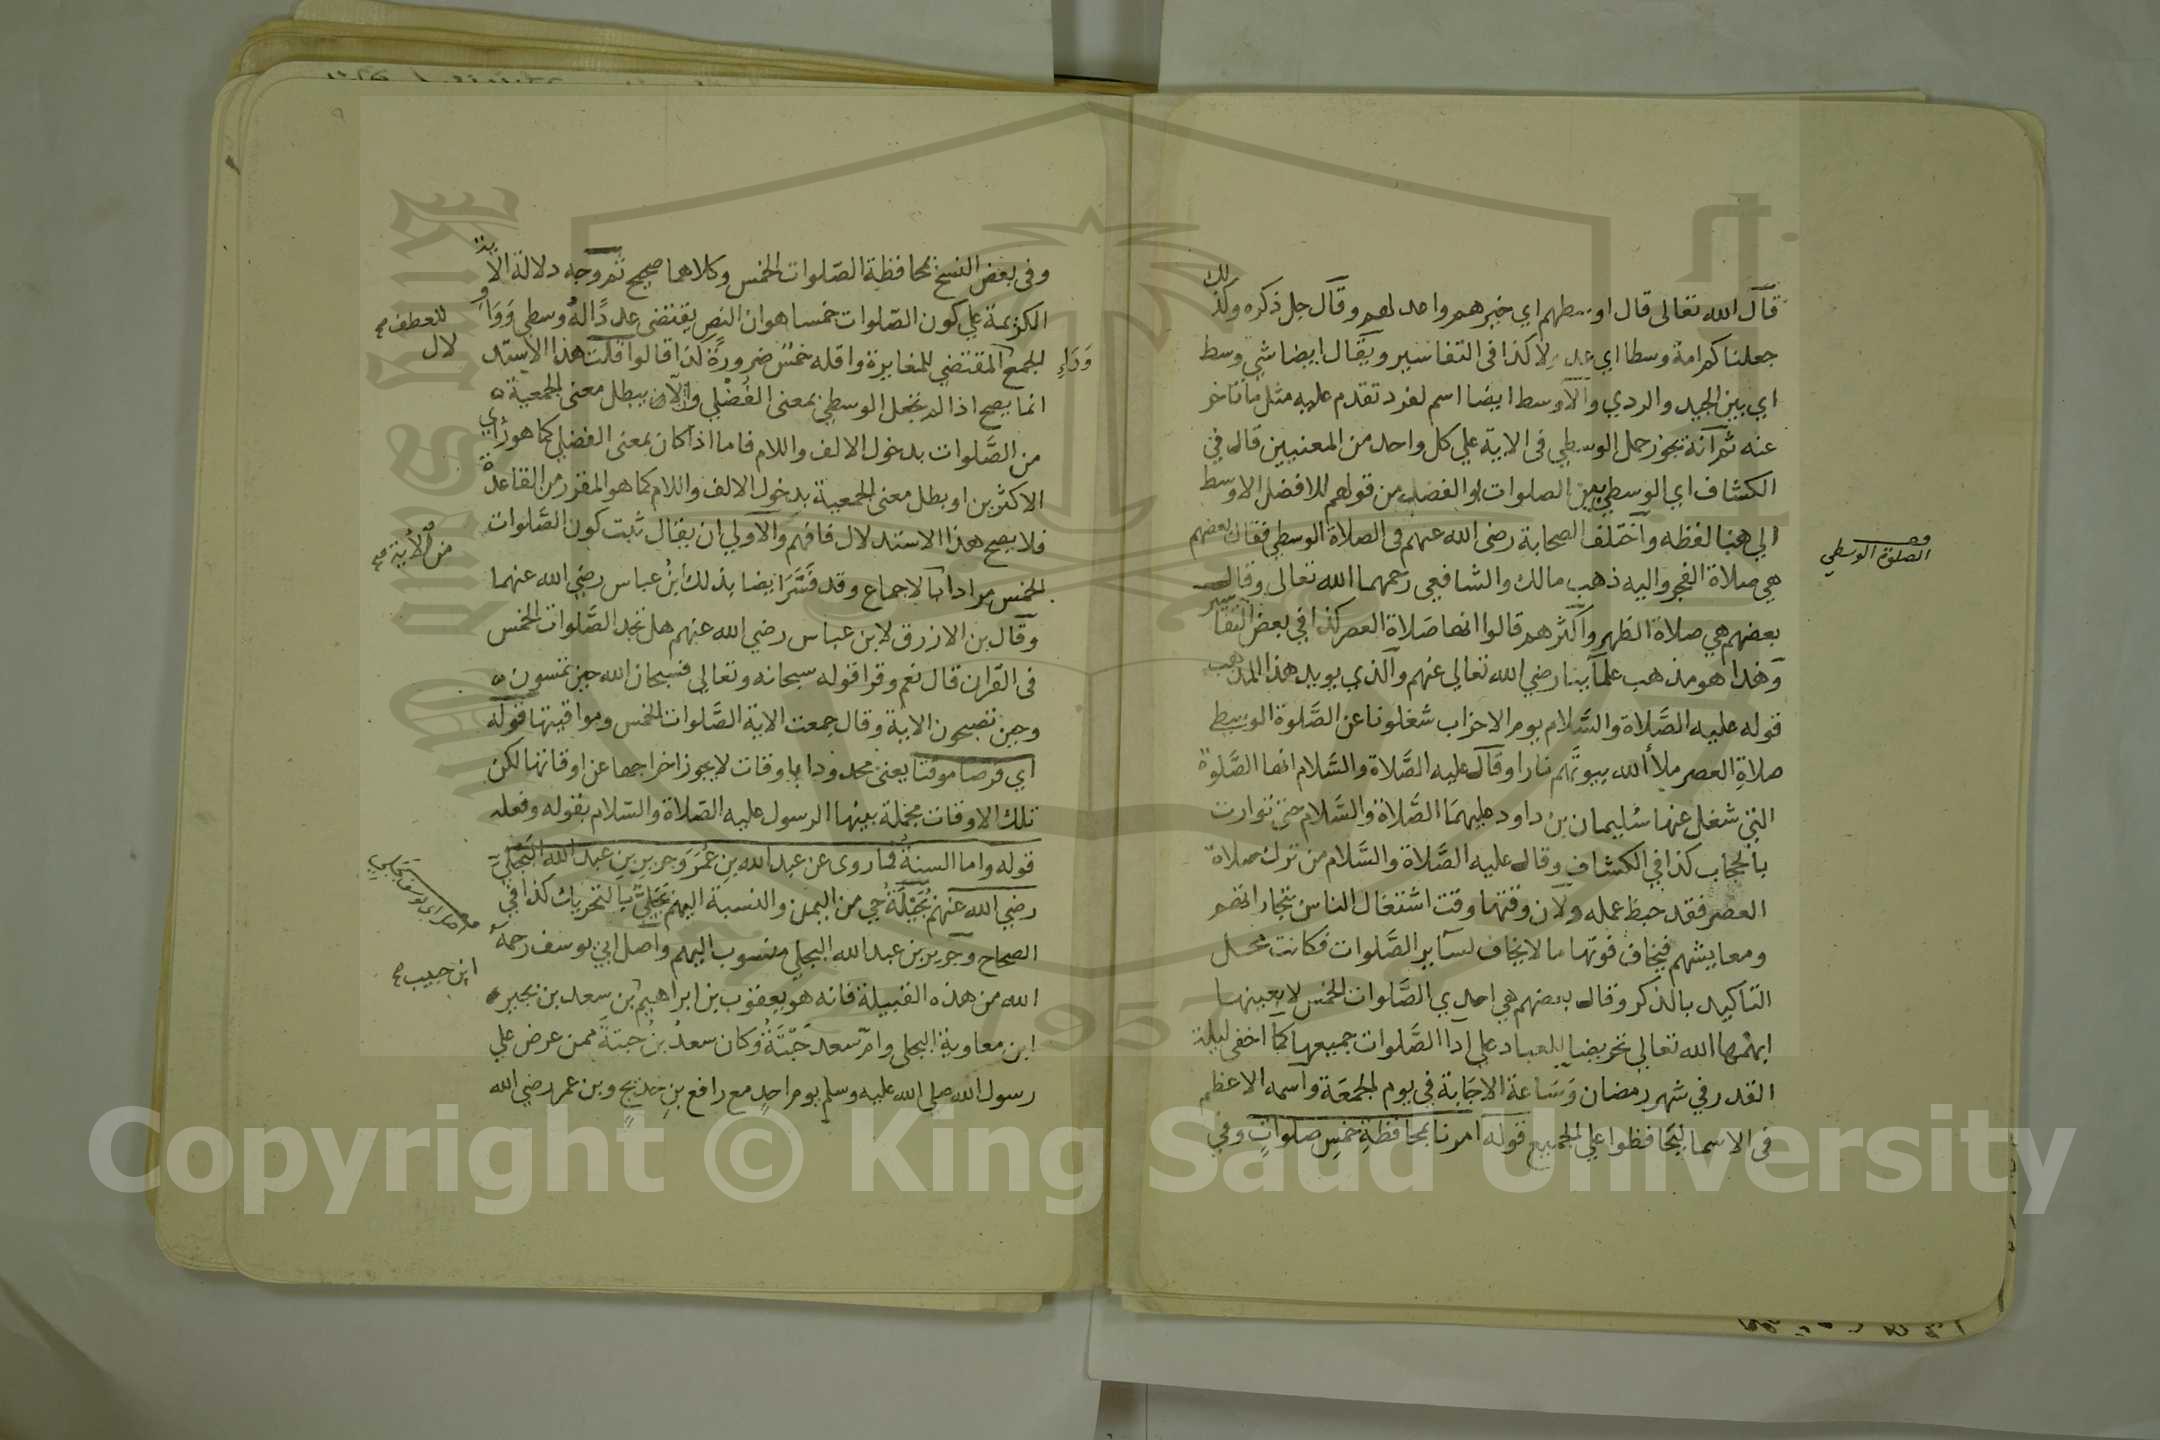 قال الله تعالى قال اوسطهم اي خيرهم واعدلهم وقال جل ذكره وكذلك
جعلناكم امة وسطا اي عدلا كذا في التفاسير ويقال ايضا شي وسط
اي بين الجيد والردي والاوسط ايضا اسم لفرد تقدم عليه مثل ما تاخر
عنه ثم انه يجوز حمل الوسطي في الاية علي كل واحد من المعنيين قال في
الكشاف اي الوسطي بين الصلوات او الفضلي من قولهم للافضل الاوسط
الي هنا لفظه واختلف الصحابة رضى الله عنهم فى الصلاة الوسطي فقال بعضهم
هي صلاة الفجر واليه ذهب مالك والشافعي رحمهما الله تعالى وقال
بعضهم هي صلاة الظهر واكثرهم قالوا انها صلاة العصر كذا في بعض التفاسير
وهذا هو مذهب علمآينا رضي الله تعالي عنهم والذي يويد هذا المذهب
قوله عليه الصَّلاة والسَّلام يوم الاحزاب شغلونا عن الصَّلوة الوسطي
صلاةِ العصر ملأ الله بيوتَهم نارا وقال عليه الصَّلاة والسَّلام انها الصَّلوة
التي شغل عنها سُليمان بن داود عليهمَا الصَّلاة والسَّلام حتى توارت
بالحجاب كذا في الكشاف وقال عليه الصَّلاة والسَّلام من ترك صلاة
العصر فقد حبط عمله ولان وقتها وقت اشتغال الناس بتجاراتهم
ومعايشهم فيخاف فوتها ما لا يخاف لسآير الصَّلوات فكانت محل
التاكيد بالذكر وقال بعضهم هي احدي الصَّلوات الخمس لا بعينها
ابهمها الله تعالي تحريضا للعباد على ادا الصَّلوات جميعها كما اخفى ليلة
القدر في شهر رمضان وَسَاعة الاجَابة في يوم الجمعَة واسمه الاعظم
فى الاسما ليحافظوا علي الجميع قوله امرنا بمحافظةِ خمسِ صلواتٍ وفي
فصـ
الصلوة الوسطي
وفى بعض النسخ بمحافظةِ الصّلوات الخمس وكلاهما صحيح ثم وجه دلالة الاية
الكريمة علي كون الصّلوات خمسا هو ان النص يقتضى عددًا لهُ وسطي وَوَاو
الجمع المقتضي للمغايرة واقله خمسٌ ضرورةً لذا قالوا قلت هذا الاستد
انما يصح اذا لم نجعل الوسطي بمعنى الفُضْلي والان يبطل معنى الجمعية
من الصَّلوات بدخول الالف واللام فاما اذا كان بمعنى الفضلي كما هو رأي
الاكثرين او بطل معنى الجمعية بدخول الالف واللام كما هو المقرر من القاعدة
فلا يصح هذا الاستدلال فافهم والاولي ان يقال ثبت كون الصَّلوات
الخمس مرادا بالاجماع وقد فَسَّرَ ايضا بذلك بنُ عباس رضي الله عنهما
وقال بن الازرق لابن عباس رضي الله عنهم هل نجد الصَّلوات الخمس
فى القران قال نعم وقرا قوله سبحانه وتعالي فسبحان الله حين تمسون
وحين تصبحون الاية وقال جمعت الاية الصَّلوات الخمس ومواقيتها قوله
اي فرضا موقتا يعنى محدودا باوقات لا يجوز اخراجها عن اوقاتها لكن
تلك الاوقات مجملة بينها الرسول عليه الصّلاة والسّلام بقوله وفعله
قوله واما السنةُ فما روى عن عبد الله بنِ عُمَرَ وجرير بن عبد الله البَجَليّ
رضي الله عنهم بُجَيْلَةُ حي من اليمن والنسبة اليهم بَجَليٌّ بالتحريك كذا في
الصحاح وجرير بن عبد الله البجلي منسوب اليهم واصل ابي يوسف رحمه
الله من هذه القبيلة فانه هو يعقوب بن ابراهيم بن سعد بن بجير
ابن معاوية البجلي وامّ سعد حَبْتَةُ وكان سعدُ بنُ حَبتةَ ممن عرض علي
رسول الله صلى الله عليه وسلم يوم احدٍ مع رافع بنِ خديجٍ وبن عمر رضي الله
للعطف صح
لال
وَوَاو
من الأية صح
ابن حبيب صح